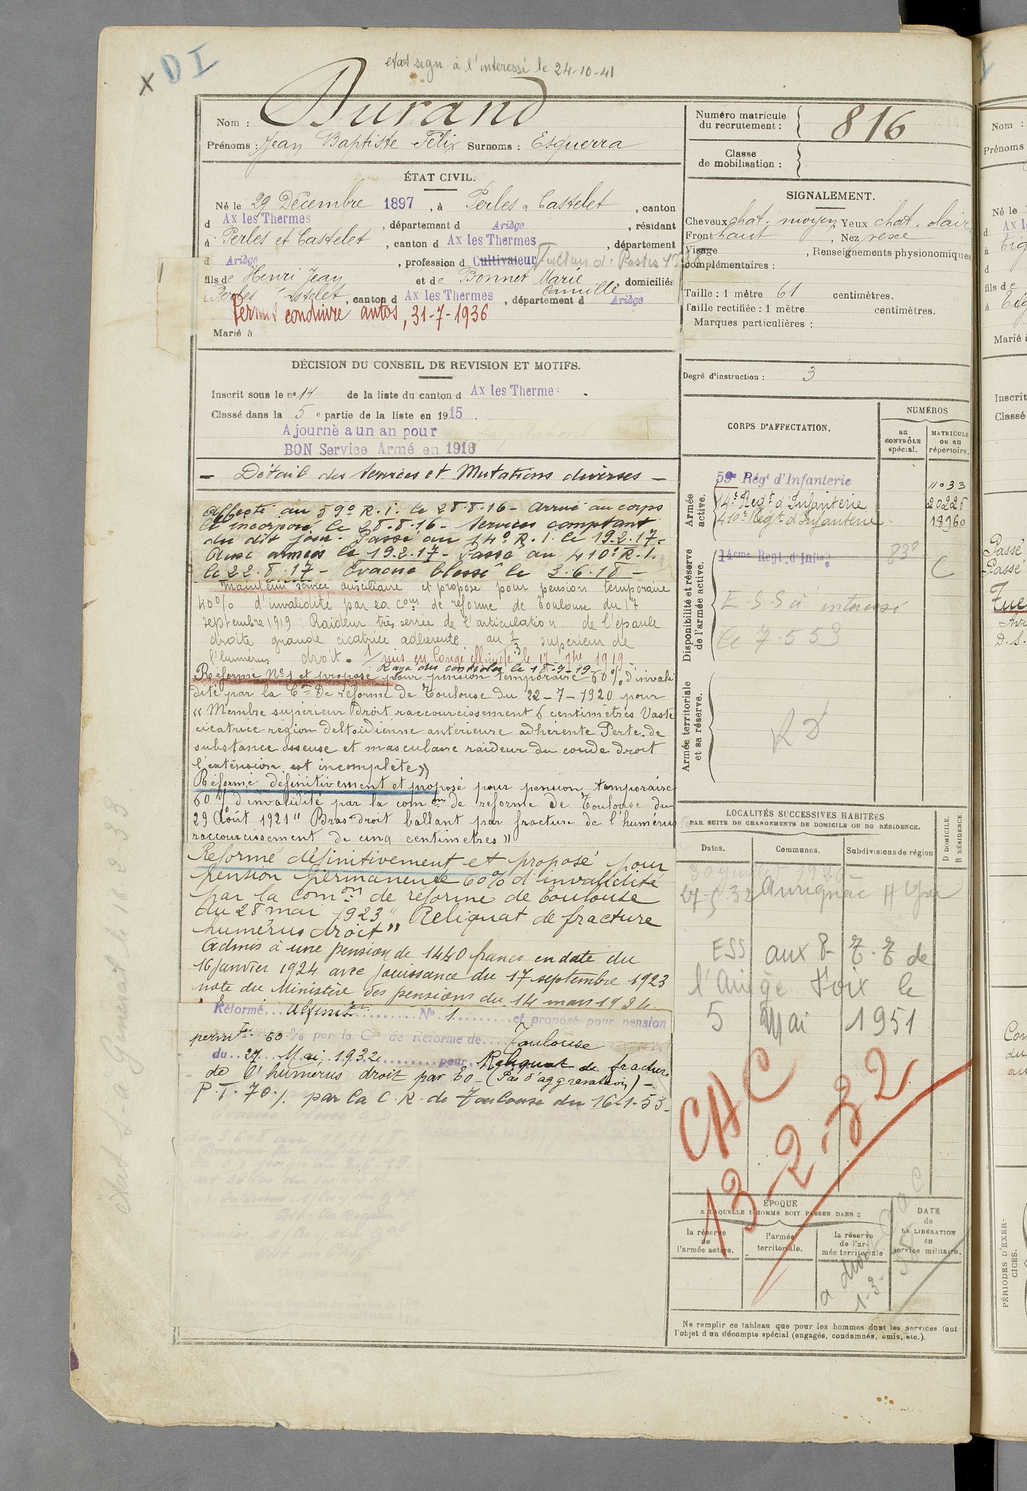 x DI
etat sign à l'interessé le 24-10-41
Nom : Durand
Prénoms : Jean Baptiste Félix Surnoms : Esquerra
Numéro matricule
du recrutement : 816
Classe
de mobilisation :
ÉTAT CIVIL.
Né le 29 Décembre 1897, à Perles & Castelet, canton
d Ax les Thermes, département d Ariège, résidant
à Perles et Castelet, canton d Ax les Thermes, département
d Ariège, profession d Cultivateur
fils de Henri Jean et de Bonnet Marie Camille domiciliés
à Perles Castelet, canton d Ax les Thermes, département d Ariège
Permis conduire autos, 31-7-1936
Marié à
SIGNALEMENT.
Cheveux chat. moyen Yeux chat. clair
Front haut, Nez
Visage, Renseignements physionomiques
complémentaires :
Taille : 1 mètre 61 centimètres.
Taille rectifiée : 1 mètre centimètres.
Marques particulières :
Degré d'instruction : 3
DÉCISION DU CONSEIL DE REVISION ET MOTIFS.
Inscrit sous le n° 14 de la liste du canton d Ax les Thermes
Classé dans la 5e partie de la liste en 1915.
Ajourné a un an pour
BON Service Armé en 1916
— Détail des Services et Mutations diverses —
Affecté au 59e R.I. le 28-8-16 - Arrivé au corps
et incorposé le 28-8-16 - Services comptant
du dit jour. Passé au 14e R.I. le 19.2.17.
Aux armées le 19.2.17 - Passé au 410e R.I.
le 22.8.17 - Evacué blessé le 3.6.18 -
Maintenu service auxiliaire et proposé pour pension temporaire
40% d'invalidité par la com de réforme de Toulouse du 17
septembre 1919 Raideur très serrée de l'articulation de l'épaule
droite grande cicatrice adhérente au 1/3 supérieur de
l'humérus droit. mis en congé illimité le 17 7bre 1919
Rayé des contrôles le 18-9-19
Réformé N° 1 et proposé pour pension temporaire 60% d'invali
dité par la Con De réforme de Toulouse du 22-7-1920 pour
« Membre supérieur droit raccourcissement 6 centimètres Vaste
cicatrice région deltoïdienne antérieure adhérente Perte de
substance osseuse et masculaire raideur du coude droit
l'extension est incomplète »
Réformé définitivement et proposé pour pension temporaire
60% d'invalidité par la comon de réforme de Toulouse du
29 Août 1921 " Bras droit ballant par fracture de l'humérus
raccourcissement de cinq centimètres »
Réformé définitivement et proposé pour
pension permanente 60% d'invalidité
par la comon de réforme de Toulouse
du 28 mai 1923 " Reliquat de fracture
humérus droit »
Admis à une pension de 1440 francs en date du
16 janvier 1924 avec jouissance du 17 septembre 1923
note du Ministère des pensions du 14 mars 1924
Réformé définitt N° 1 et proposé pour pension
permte 60% par la Con de Réforme de Toulouse
du 27 Mai 1932 pour Reliquat de fracture
de l'humérus droit par 60 - (Pas d'aggravation) -
P T. 70% par la C.R. de Toulouse du 16-1-53 -
CORPS D'AFFECTATION.
NUMÉROS
au
CONTRÔLE
spécial.
MATRICULE
ou au
répertoire.
Armée
active.
59e Régt d'Infanterie 11033
14e Régt d'Infanterie 20225
410e Régt d'Infanterie 18960
Disponibilité et réserve
de l'armée active.
14eme Regt d'Infie
E S S à
le 7.5.53
Armée territoriale
et sa réserve.
LOCALITÉS SUCCESSIVES HABITÉES
PAR SUITE DE CHANGEMENTS DE DOMICILE OU DE RÉSIDENCE.
Dates.
Communes.
Subdivisions de région
D DOMICILE.
R RÉSIDENCE.
27-5-32 Aurignac H Gne
ESS aux 8- de
l'Ariège Foix le
5 Mai 1951
CAC
13-2-32
ÉPOQUE
A LAQUELLE L'HOMME DOIT PASSER DANS :
la réserve
de
l'armée active.
l'armée
territoriale.
la réserve
de l'ar-
mée territoriale
DATE
de
LA LIBÉRATION
du
service militaire.
Ne remplir ce tableau que pour les hommes dont les services font
l'objet d'un décompte spécial (engagés, condamnés, omis, etc.).
PÉRIODES D'EXER-
CICES.